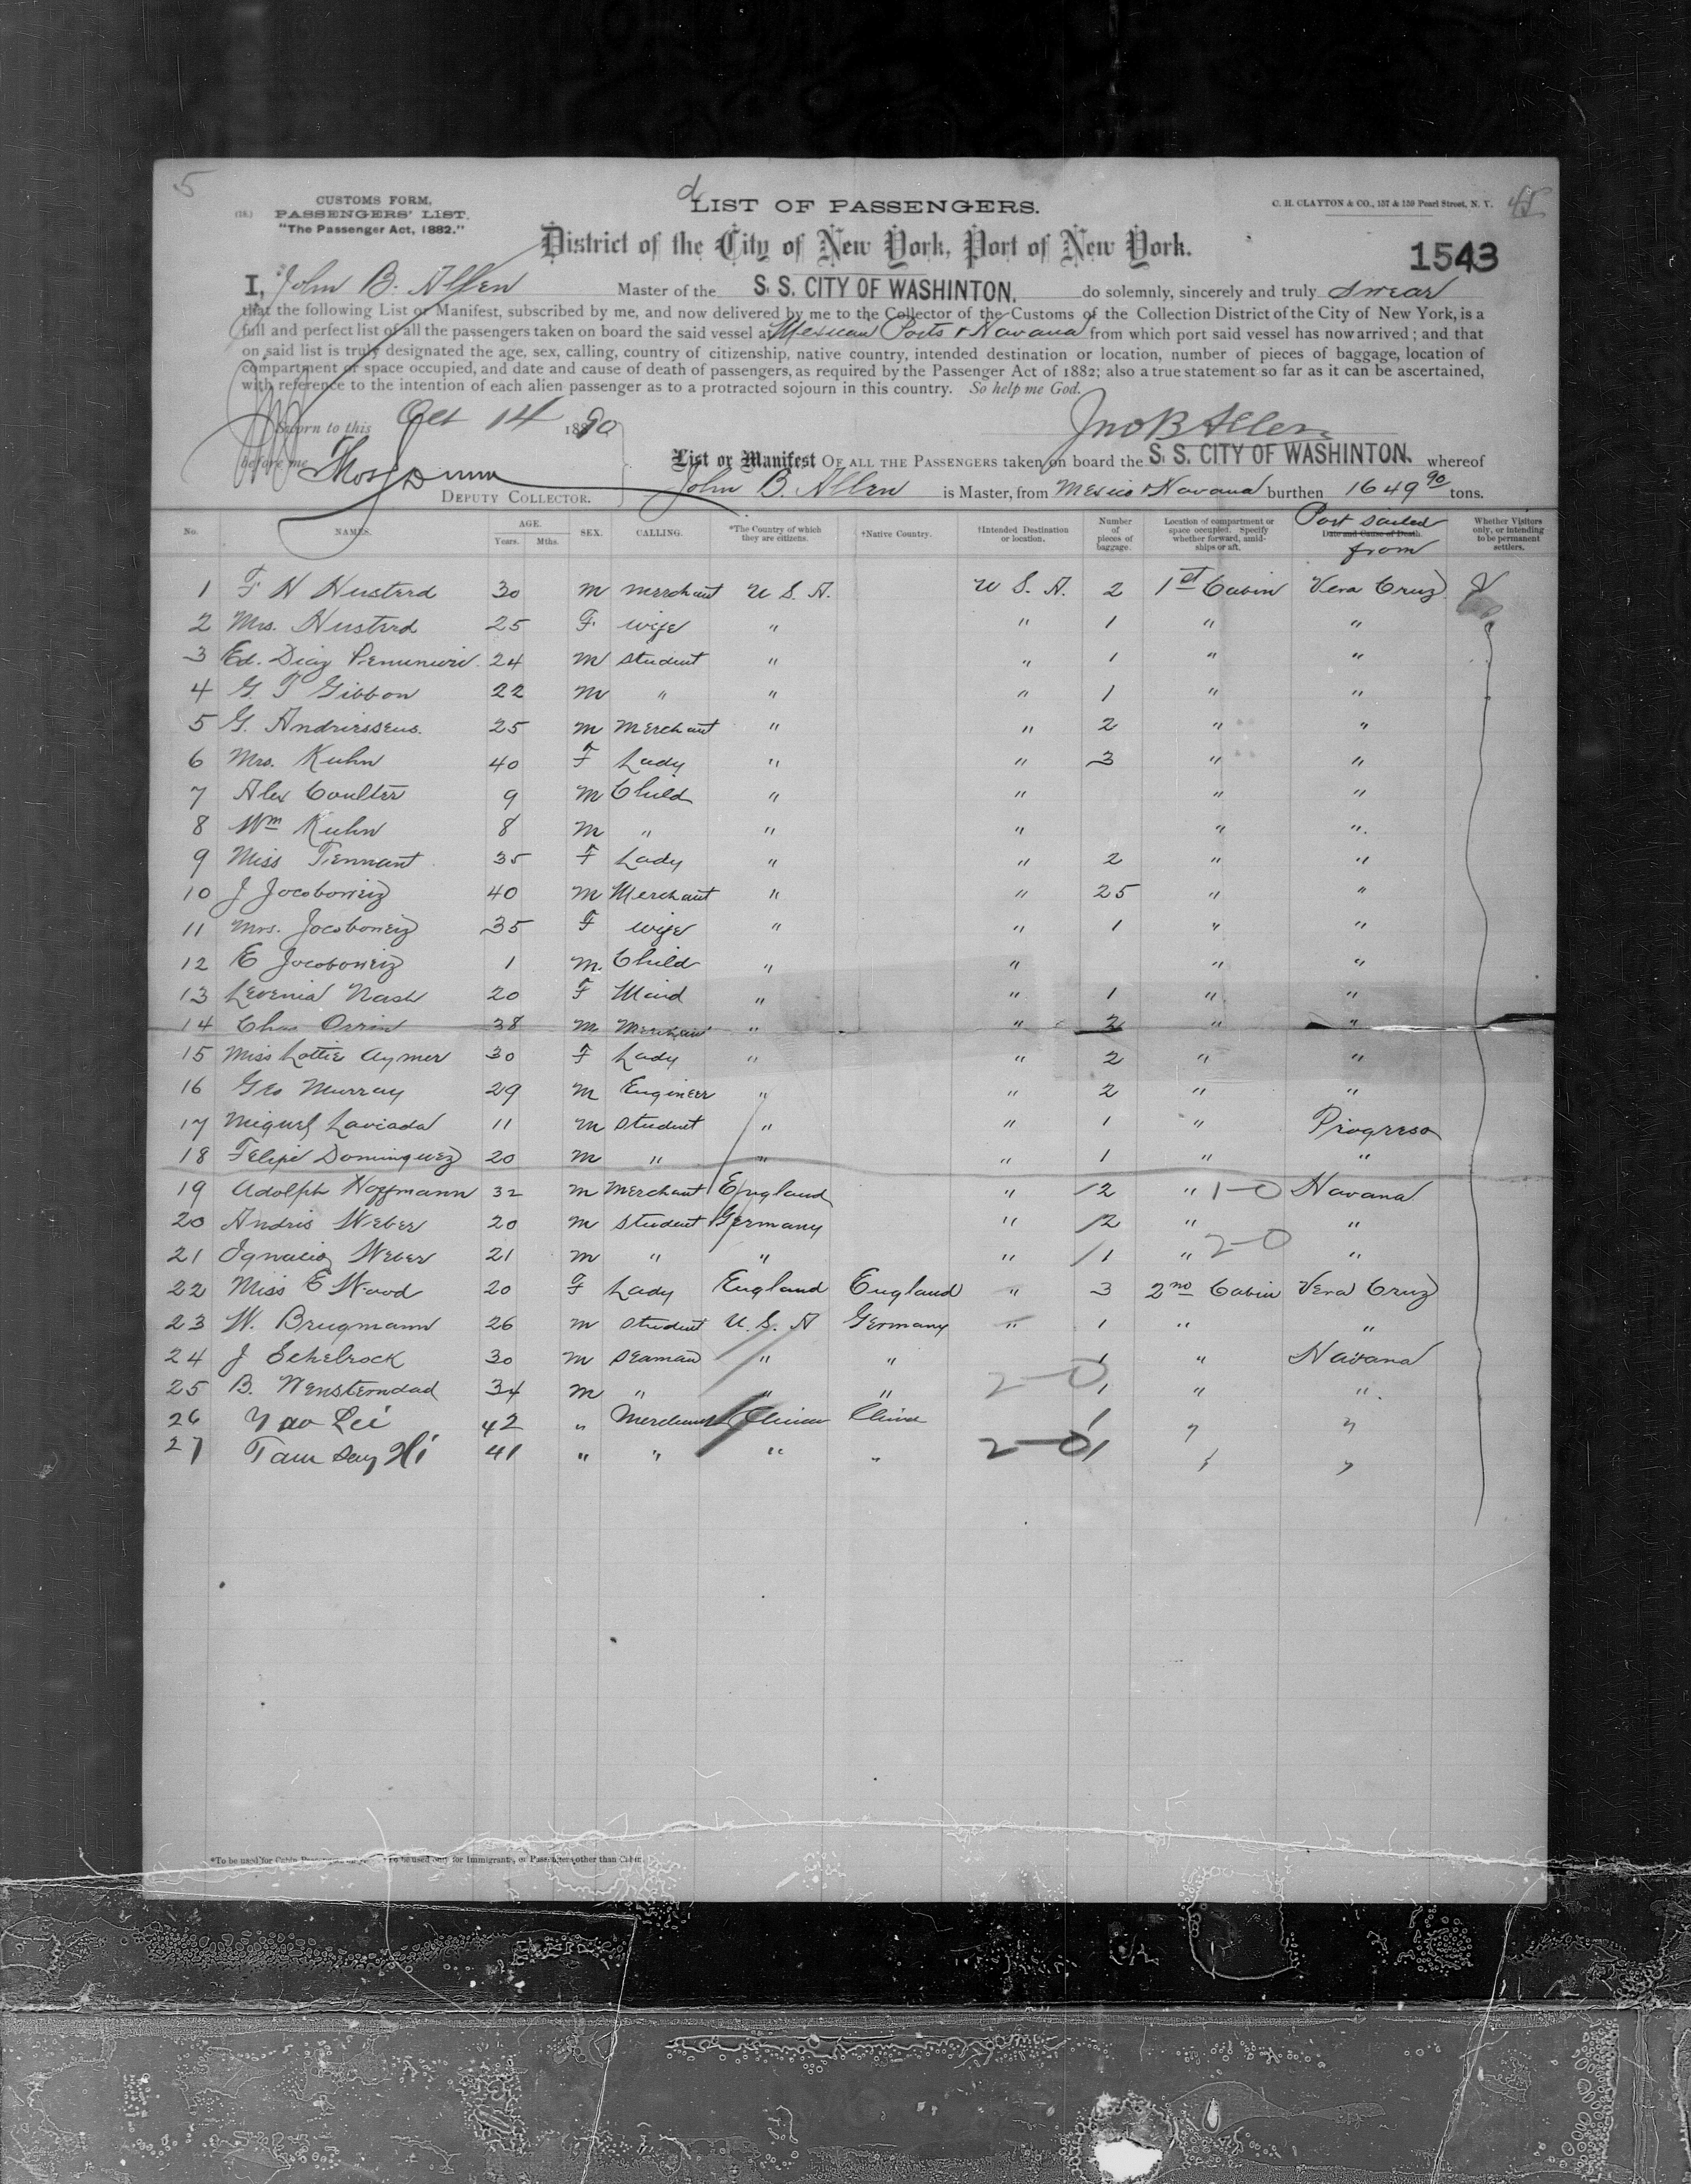 5
CUSTOMS FORM,
PASSENGERS' LIST.
"The Passenger Act, 1882."
LIST OF PASSENGERS.
C. H. CLAYTON & CO., 157 & 159 Pearl Street, N. Y.
District of the City of New York, Port of New York.
1543
I, John B. Allen Master of the S. S. CITY OF WASHINTON. do solemnly, sincerely and truly swear
that the following List or Manifest, subscribed by me, and now delivered by me to the Collector of the Customs of the Collection District of the City of New York, is a
full and perfect list of all the passengers taken on board the said vessel at Mexican Ports & Havana from which port said vessel has now arrived; and that
on said list is truly designated the age, sex, calling, country of citizenship, native country, intended destination or location, number of pieces of baggage, location of
compartment or space occupied, and date and cause of death of passengers, as required by the Passenger Act of 1882; also a true statement so far as it can be ascertained,
with reference to the intention of each alien passenger as to a protracted sojourn in this country. So help me God.
Sworn to this Oct 14 1890
Jno B Allen
before me
List or Manifest OF ALL THE PASSENGERS taken on board the S. S. CITY OF WASHINTON. whereof
DEPUTY COLLECTOR.
John B. Allen is Master, from Mexico & Havana burthen 1649 90 tons.
No. NAMES. AGE. Years. Mths. SEX. CALLING. *The Country of which they are citizens. †Native Country. †Intended Destination or location. Number of pieces of baggage. Location of compartment or space occupied. Specify whether forward, amidships or aft. Date and Cause of Death. Port sailed from Whether Visitors only, or intending to be permanent settlers.
1 F H Husterd 30 m merchant U. S. A. U. S. A. 2 1st Cabin Vera Cruz
2 Mrs. Husterd 25 F wife " " 1 " "
3 Ed. Diaz 24 m student " " 1 " "
4 G. T Gibbon 22 m " " " 1 " "
5 G. Andrirsseus. 25 m Merchant " " 2 " "
6 Mrs. Kuhn 40 F Lady " " 3 " "
7 Alex Coulter 9 m Child " " " "
8 Wm Kuhn 8 m " " " " "
9 Miss Tennant 35 F Lady " " 2 " "
10 J Jocoboneiz 40 m Merchant " " 25 " "
11 Mrs. Jocoboneiz 35 F wife " " 1 " "
12 E Jocoboneiz 1 m. Child " " " "
13 Levenia Nash 20 F Maid " " 1 " "
14 Chas Orrin 38 m Merchant " " 2 " "
15 Miss Lottie Aymer 30 F Lady " " 2 " "
16 Geo Murray 29 m Engineer " " 2 " "
17 Miguel Laviada 11 m student " " 1 " Progreso
18 Felipe Dominquez 20 m " " " 1 " "
19 Adolph Hoffmann 32 m Merchant England " 2 " 1-0 Havana
20 Andris Weber 20 m student Germany " 2 " "
21 Ignacio Weber 21 m " " " 1 " 2-0 "
22 Miss E Wood 20 F Lady England England " 3 2nd Cabin Vera Cruz
23 W. Brugmann 26 m student U. S. A Germany " 1 " "
24 J Schelrock 30 m seaman " " 1 " Havana
25 B. Wensterndad 34 m " " " 2-0 1 " "
26 Yao Lei 42 " Merchant China China 1 " "
27 Tam Say Hi 41 " " " " 2-0 1 " "
*To be used for Cabin Passengers only. †To be used only for Immigrants, or Passengers other than Cabin.